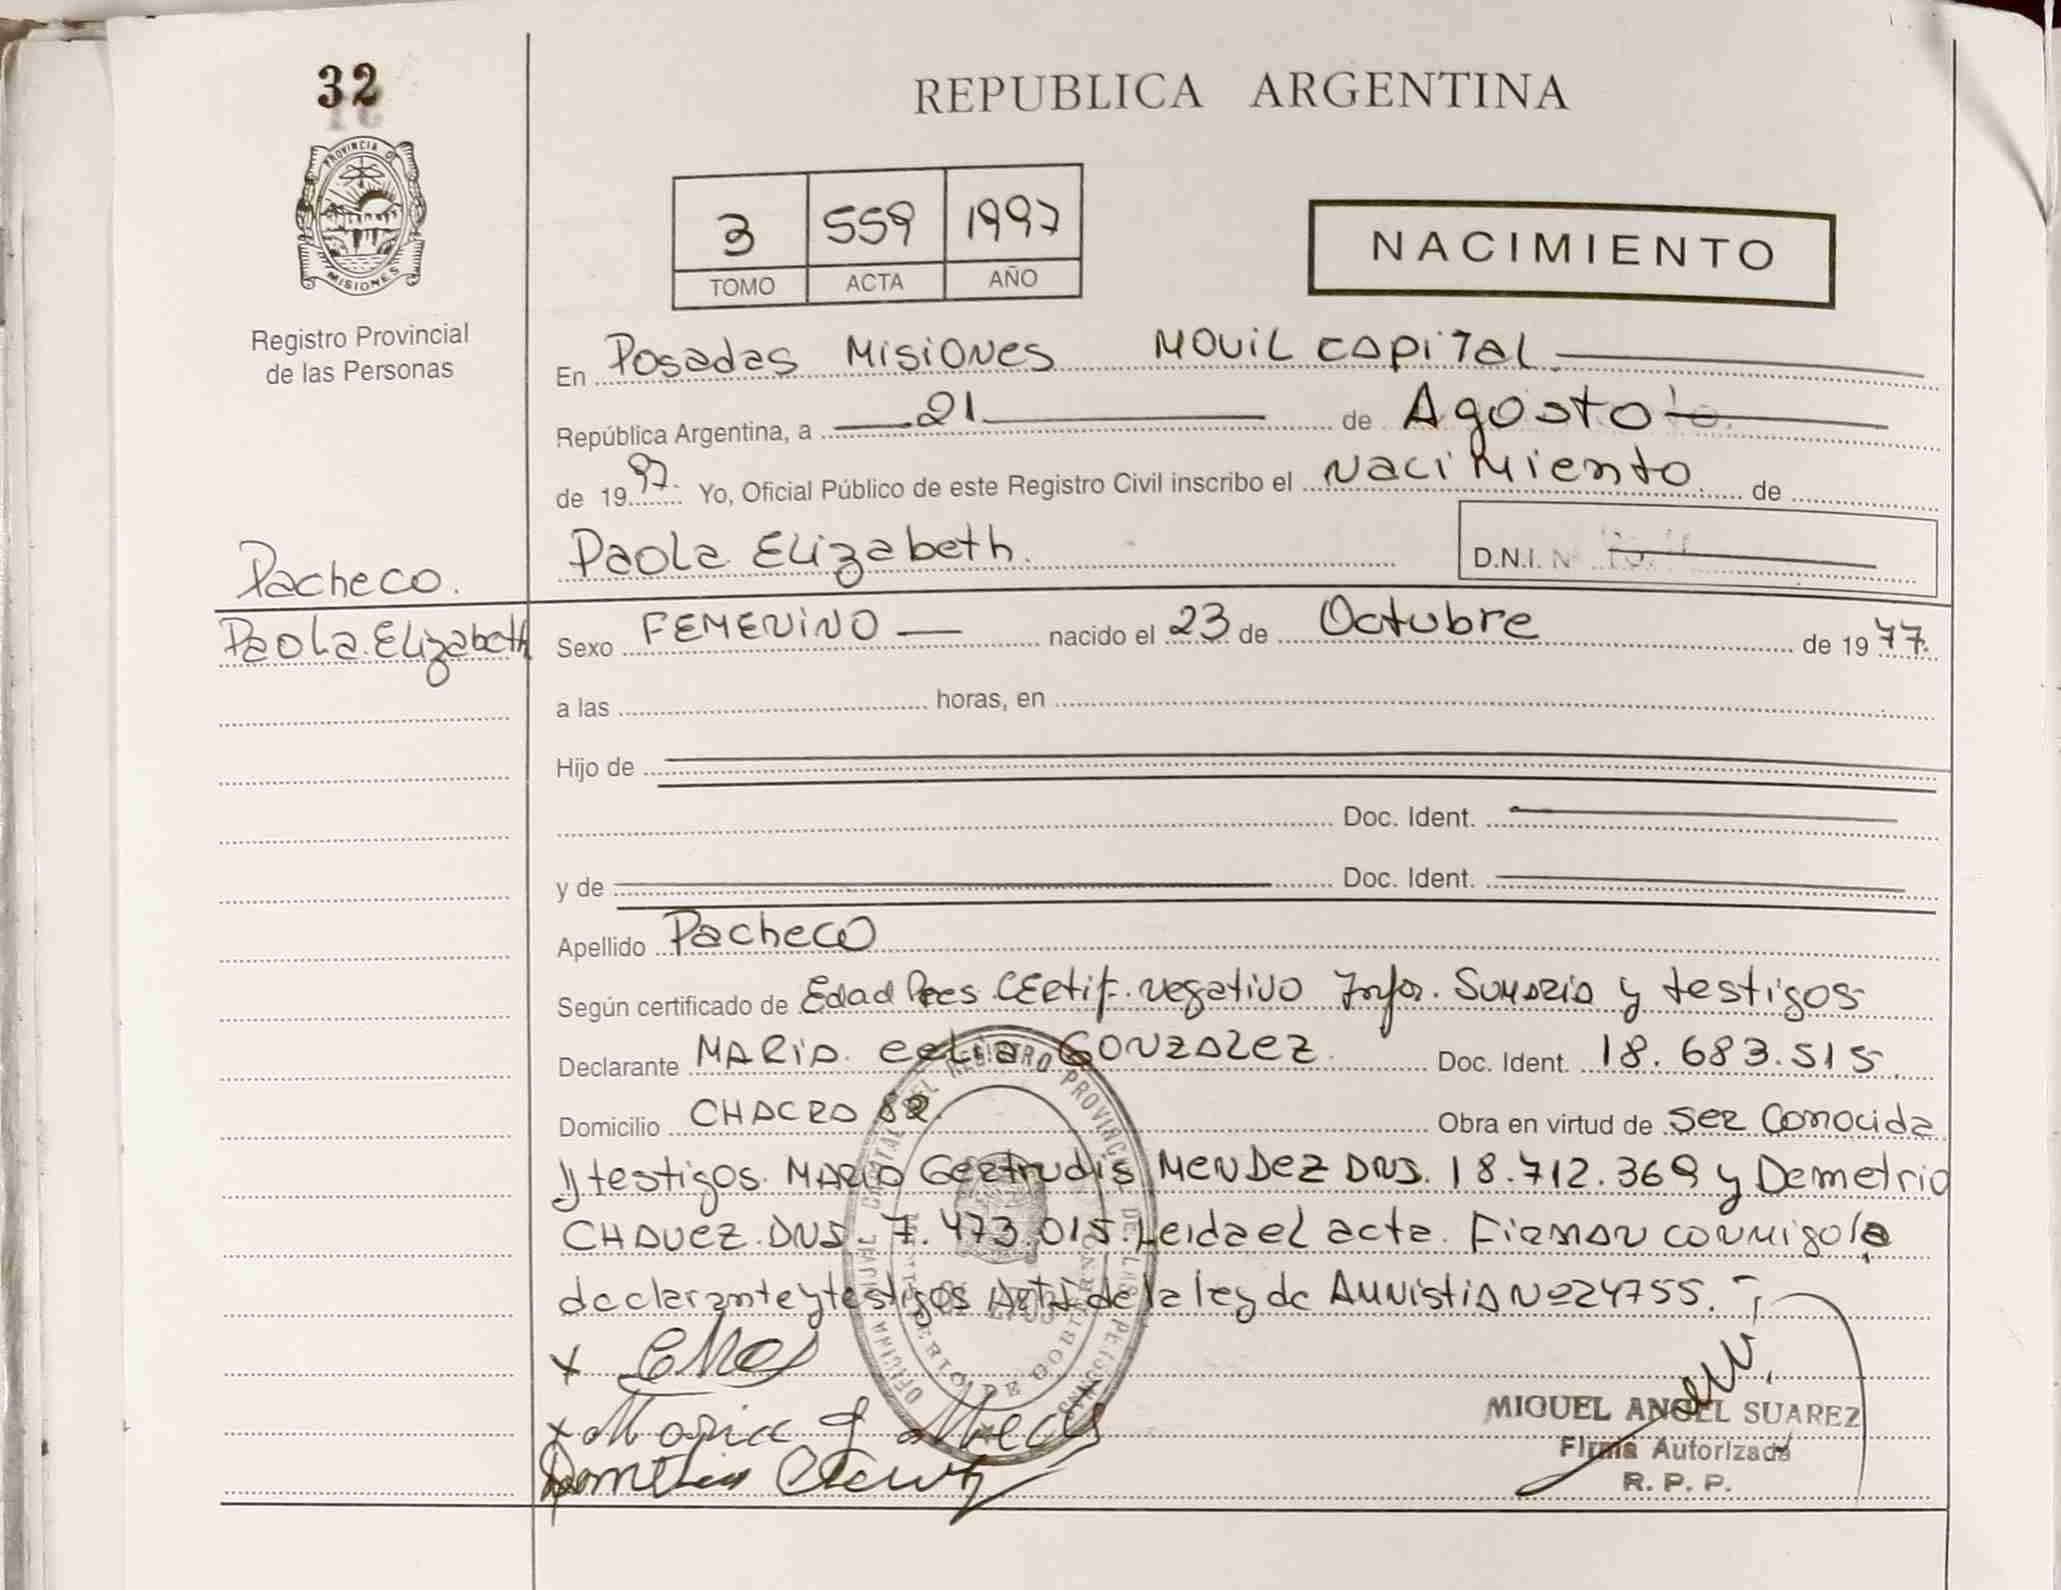 32
PROVINCIA DE
MISIONES
Registro Provincial
de las Personas
REPUBLICA ARGENTINA
3 559 1997
TOMO ACTA AÑO
NACIMIENTO
En Posadas Misiones Movil capital
República Argentina, a 21 de Agosto
de 1997. Yo, Oficial Público de este Registro Civil inscribo el Nacimiento de
Paola Elizabeth. D.N.I. Nº
Pacheco.
Paola Elizabeth
Sexo FEMENINO nacido el 23 de Octubre de 1977.
a las horas, en
Hijo de
Doc. Ident.
y de Doc. Ident.
Apellido Pacheco
Según certificado de Edad Pres. CErtif. negativo Infor. Sumario y testigos
Declarante MARIA. celia GONZALEZ. Doc. Ident. 18.683.515.
Domicilio CHACRA 82. Obra en virtud de ser Conocida
y testigos. MARIA Gertrudis MENDEZ DNI. 18.712.369 y Demetrio
CHAVEZ. DNI. 7.473.015. Leida el acta. Firman conmigo la
declarante y testigos de la ley de Amnistia Nº 24755.
MIGUEL ANGEL SUAREZ
Firma Autorizada
R. P. P.